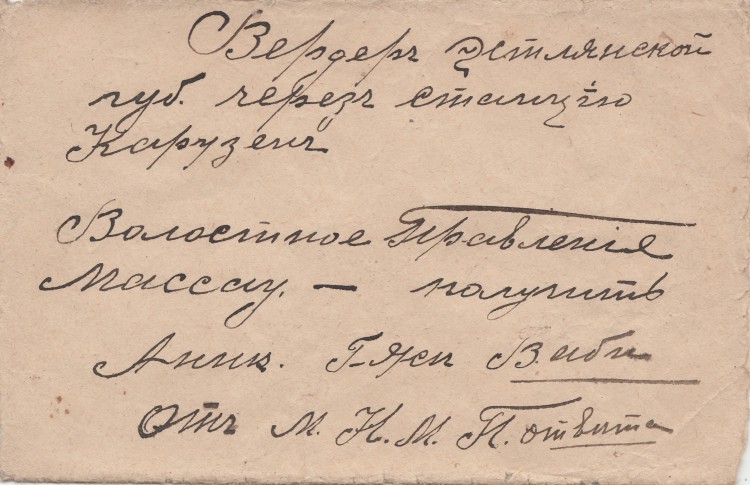 Вердеръ Эстлянской
губ. черезъ станцію
Карузенъ
Волостное Правленіе
Массау. — получить
Аник. Г-жи Ваби
Отъ М. К. М. П. отвѣта